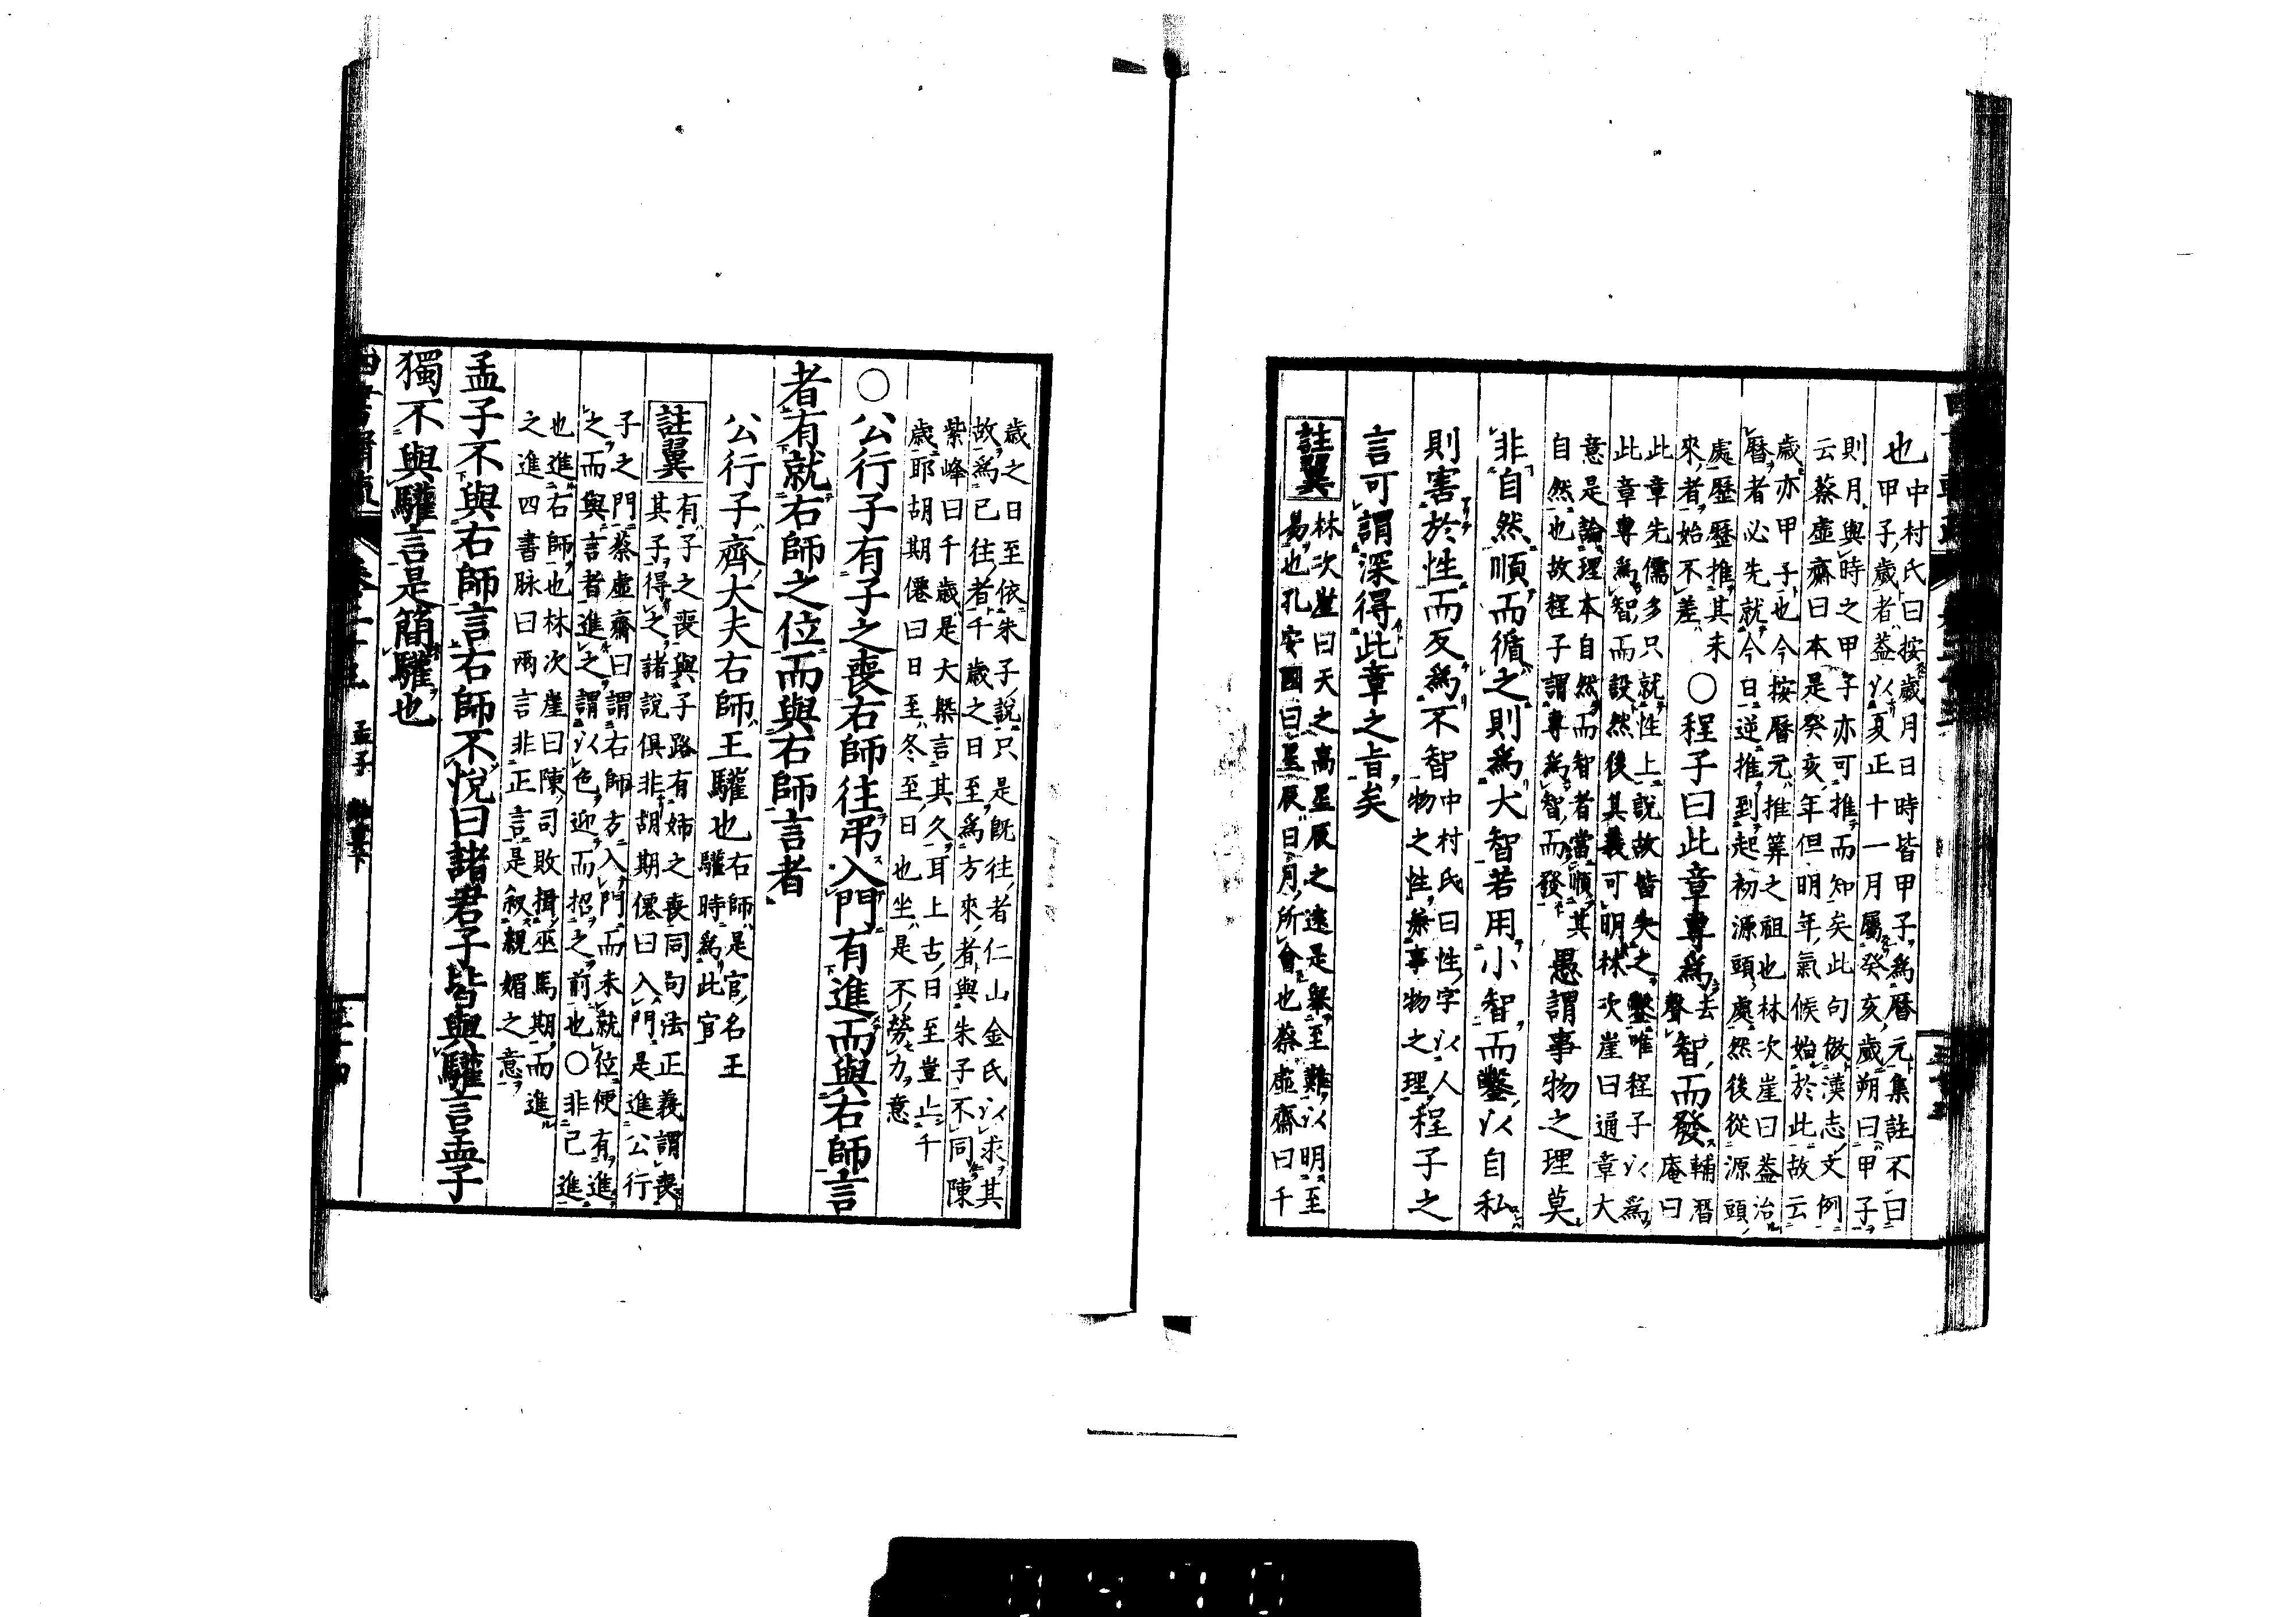 也中村氏曰按歲月日時皆甲子爲曆元集註不曰
甲子歲者蓋以夏正十一月屬癸亥歲朔曰甲子
則月與時之甲子亦可推而知矣此句倣漢志文例
云蔡虛齋曰本是癸亥年但明年氣候始於此故云
歲亦甲子也今按曆元推筭之祖也林次崖曰蓋治
曆者必先就今日逆推到起初源頭處然後從源頭
處歷歷推其未
來者始不差
○程子曰此章專爲
去聲
智而發
輔曆
庵曰
此章先儒多只就性上說故皆失之鑿唯程子以爲
此章專爲智而設然後其義可明林次崖曰通章大
意是論理本自然而智者當順其
自然也故程子謂專爲智而發
愚謂事物之理莫
非自然順而循之則爲大智若用小智而鑿以自私
則害於性而反爲不智
中村氏曰性字以人
物之性兼事物之理
程子之
言可謂深得此章之旨矣
註翼
林次崖曰天之高星辰之遠是舉至難以明至
易也孔安國曰星辰日月所會也蔡虛齋曰千
歲之日至依朱子說只是既往者仁山金氏以求其
故爲已往者千歲之日至爲方來者與朱子不同陳
紫峰曰千歲是大槩言其久耳上古日至豈止千
歲耶胡期僊曰日至冬至日也坐是不勞力意
○公行子有子之喪右師往弔入門有進而與右師言
者有就右師之位而與右師言者
公行子齊大夫右師王驩也
右師是官名王
驩時爲此官
註翼
有子之喪與子路有姉之喪同句法正義謂喪
其子得之諸說俱非胡期僊曰入門是進公行
子之門蔡虛齋曰謂右師方入門而未就位便有進
之而與言者進之謂以色迎而招之前也○非己進
也進右師也林次崖曰陳司敗揖巫馬期而進
之進四書脉曰兩言非正言是叙親媚之意
孟子不與右師言右師不悅曰諸君子皆與驩言孟子
獨不與驩言是簡驩也
孟子